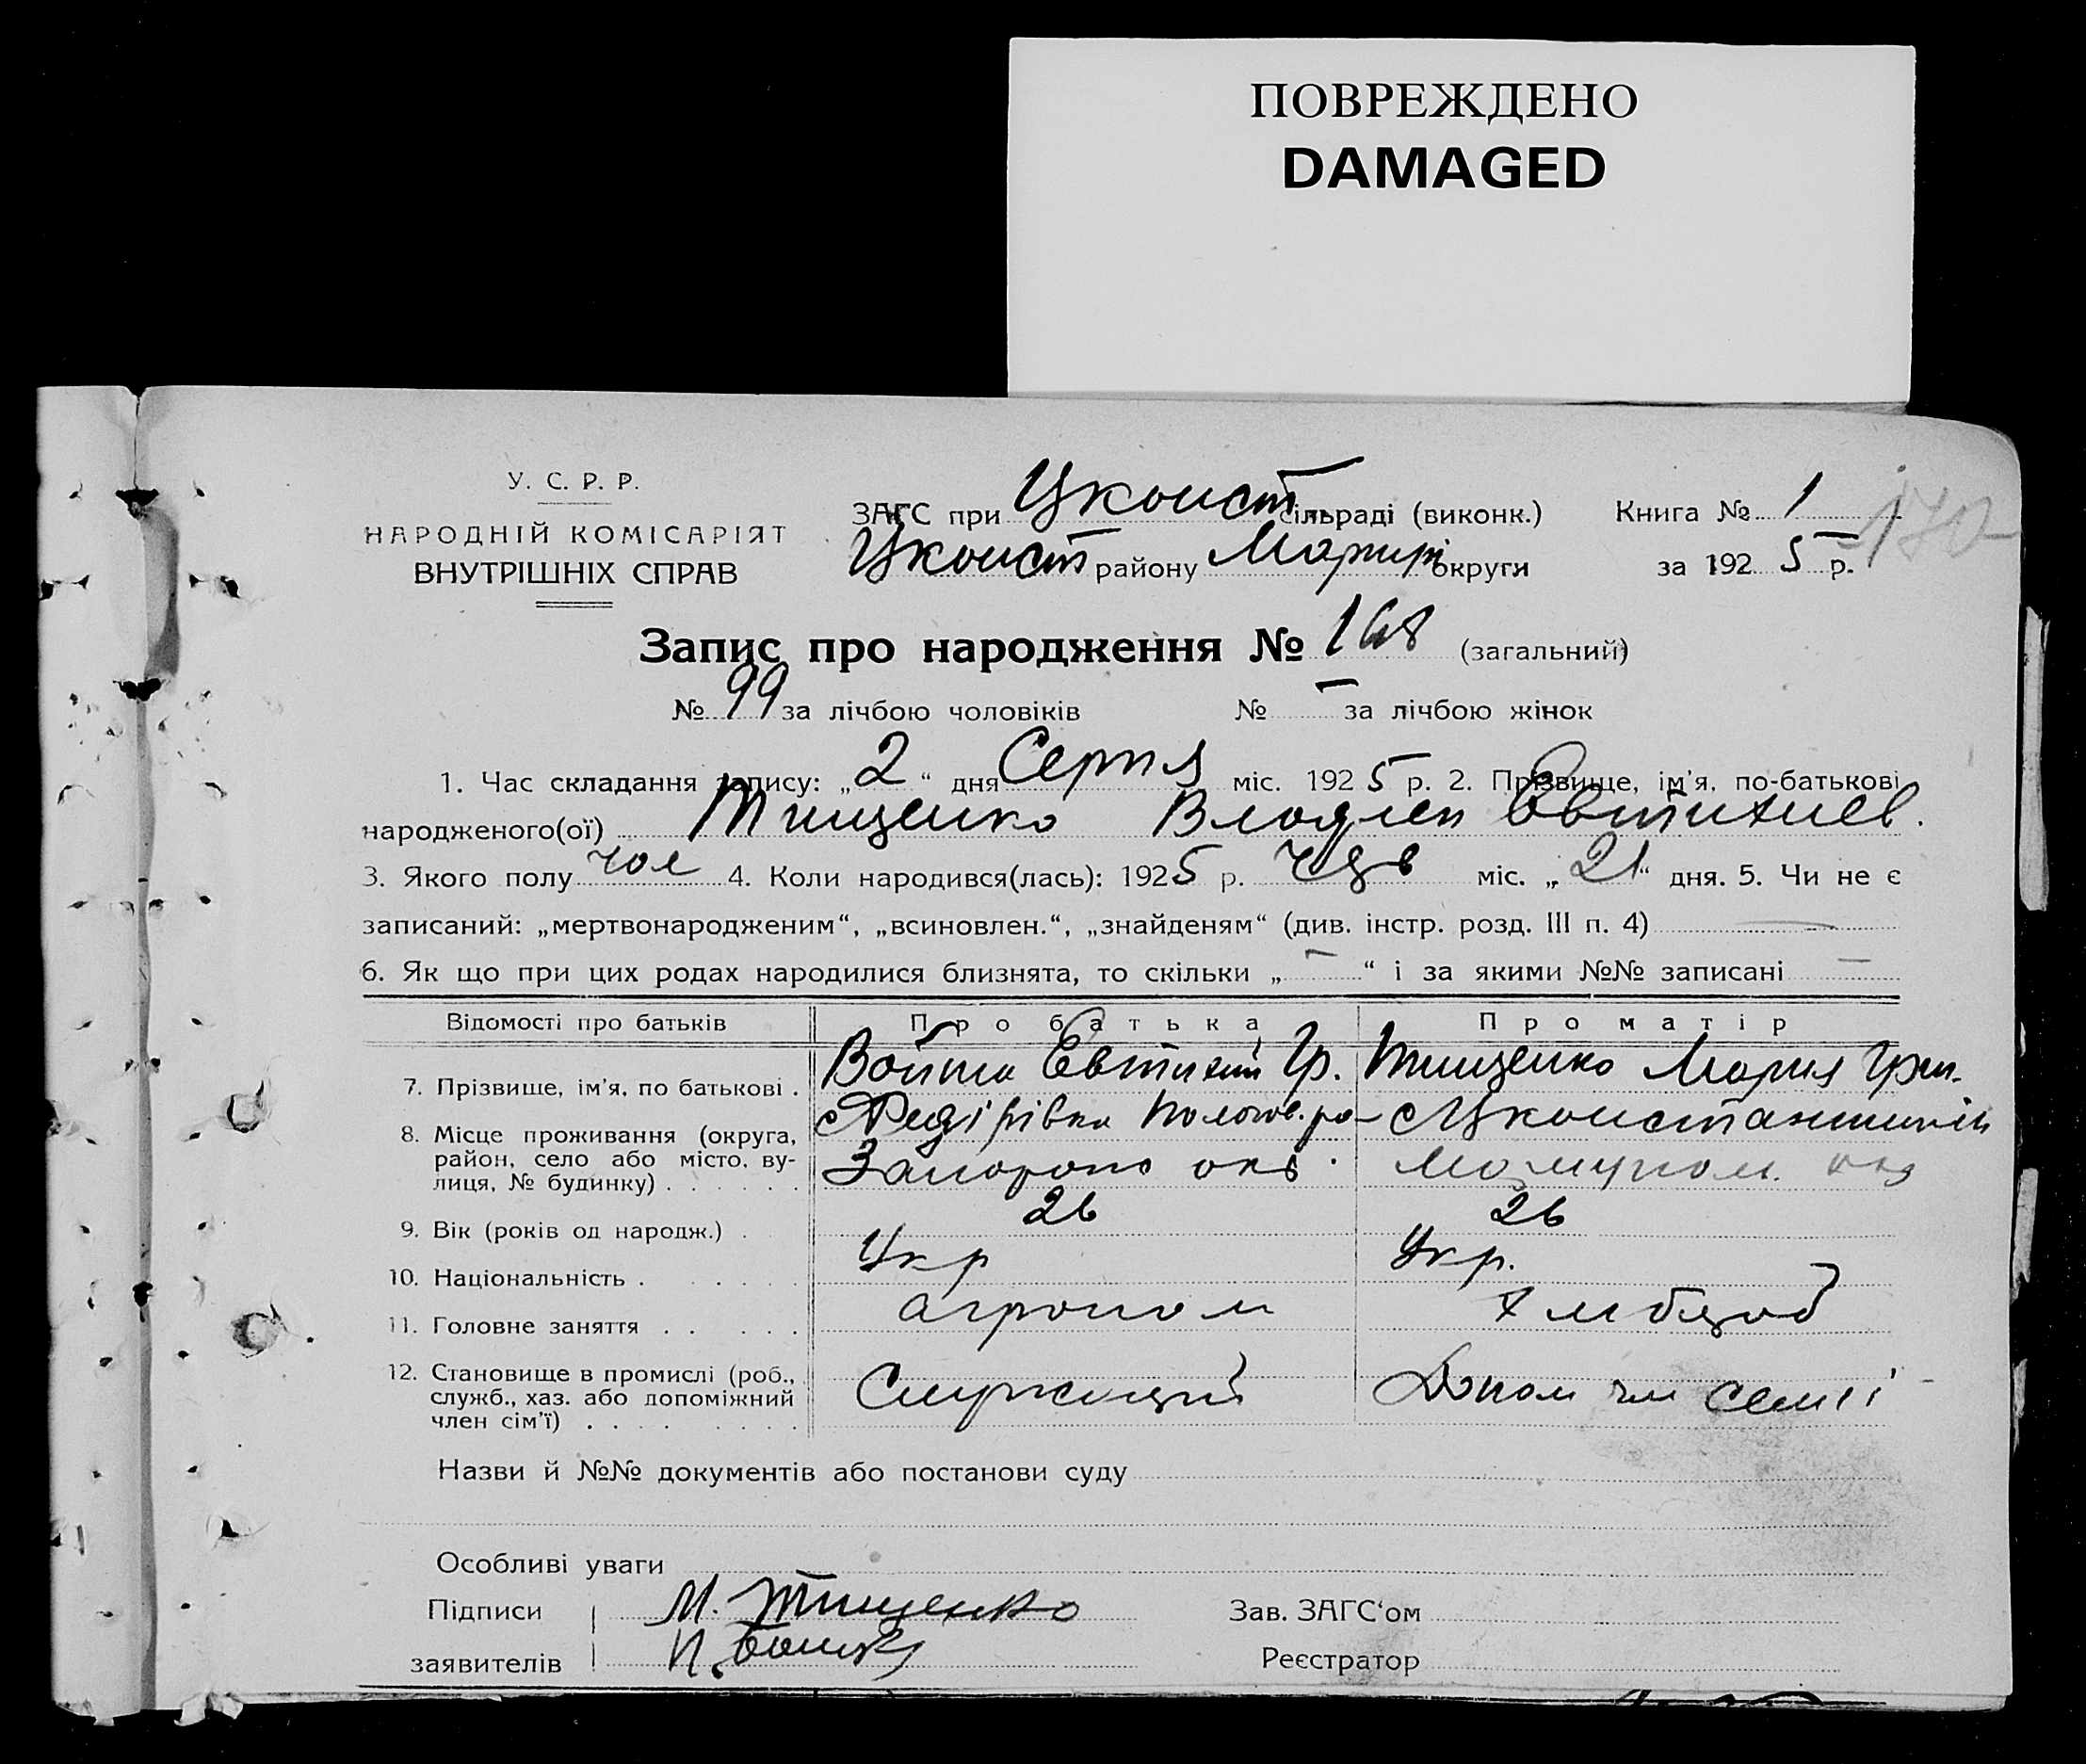 ПОВРЕЖДЕНО
DAMAGED
У. С. Р. Р.
НАРОДНІЙ КОМІСАРІЯТ
ВНУТРІШНІХ СПРАВ
ЗАГС при Цконст сільраді (виконк.)
Цконст району Маріюп округи
Книга № 1
за 1925 р.
170
Запис про народження № 168 (загальний)
№ 99 за лічбою чоловіків № — за лічбою жінок
1. Час складання запису: „2“ дня Серпня міс. 1925 р. 2. Прізвище, ім'я, по-батькові
народженого(ої) Тищенко Владлен Евтихиев.
3. Якого полу чол 4. Коли народився(лась): 1925 р. міс. „21“ дня. 5. Чи не є
записаний: „мертвонародженим“, „всиновлен.“, „знайденям“ (див. інстр. розд. III п. 4) —
6. Як що при цих родах народилися близнята, то скільки „—“ і за якими №№ записані —
Відомості про батьків Про батька Про матір
7. Прізвище, ім'я, по батькові . Войта Евтихий Гр. Тищенко Мария Григ.
8. Місце проживання (округа, район, село або місто, вулиця, № будинку) . . . . . . с Федірівка Пологов. ра- Запорожс окр. с Цконстантинів Мариупол. окр
9. Вік (років од народж.) . 26 26
10. Національність . . . . . . Укр Укр.
11. Головне заняття . . . . . агроном хлібороб
12. Становище в промислі (роб., служб., хаз. або допоміжний член сім'ї) . . . . . . . . Служащий Допом чл семіі
Назви й №№ документів або постанови суду
Особливі уваги
Підписи М. Тищенко Зав. ЗАГС‘ом
заявителів Реєстратор